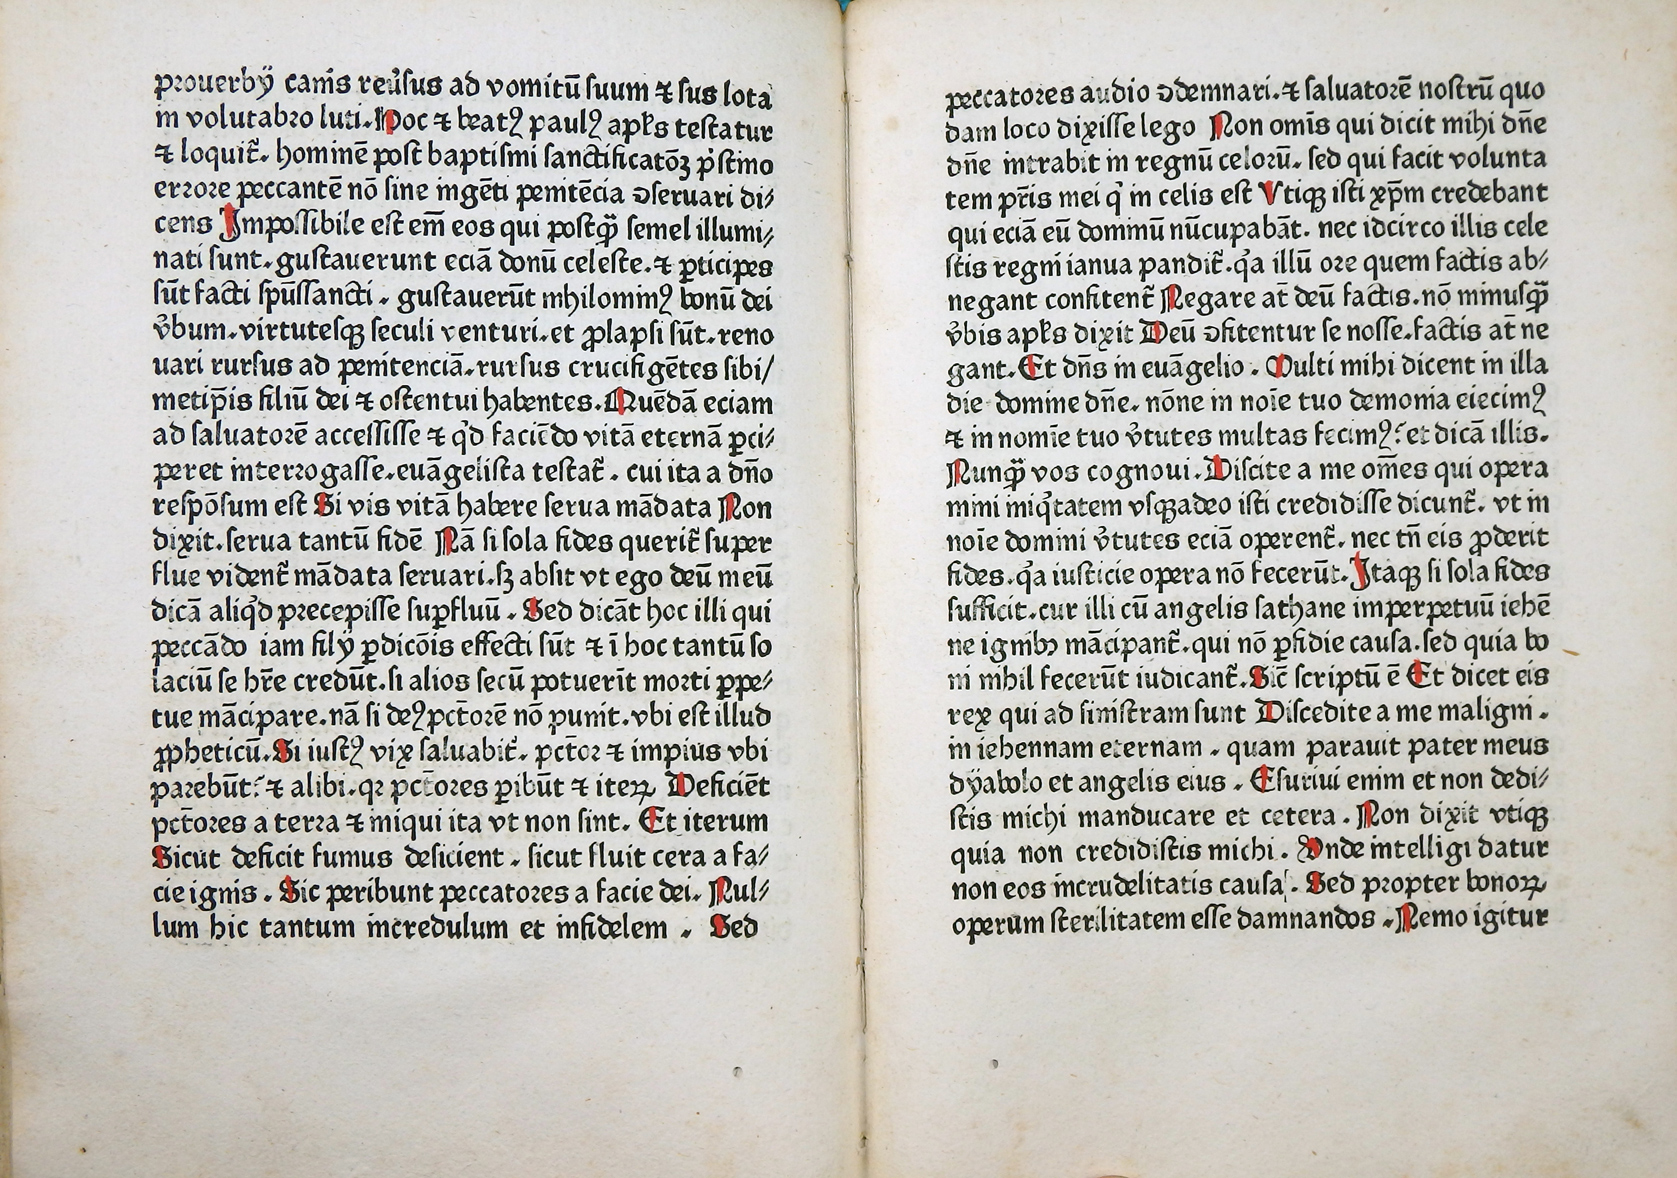 prouerbÿ canis reũsus ad vomitū suum ⁊ sus lota
in volutabro luti. Hoc ⁊ beatꝰ paulꝰ apłs testatur
⁊ loquit̃. hominē post baptismi sanctificatōꝫ p̓stino
errore peccantē nō sine ingēti penitēcia ↄseruari di⸗
cens Impossibile est em̄ eos qui postq̄ꝫ semel illumi⸗
nati sunt. gustauerunt eciā donū celeste. ⁊ ꝑticipes
sūt facti spūssancti. gustauerūt nihilominꝰ bonū dei
v̓bum. virtutesqꝫ seculi venturi. et ꝓlapsi sūt. reno
uari rursus ad penitenciā. rursus crucifigētes sibi/
metip̄is filiū dei ⁊ ostentui habentes. Quēdā eciam
ad saluatorē accessisse ⁊ qͥd faciēdo vitā eternā ꝑci⸗
peret interrogasse. euāgelista testat̃. cui ita a dn̄o
respōsum est Si vis vitā habere serua mādata Non
dixit. serua tantū fidē Nā si sola fides querit̃ super
flue vident̃ mādata seruari. sꝫ absit vt ego deū meū
dicā aliqͥd precepisse suꝑfluū. Sed dicāt hoc illi qui
peccādo iam filÿ ꝑdicōis effecti sūt ⁊ ī hoc tantū so
laciū se hr̄e credūt. si alios secū potuerīt morti ꝑpe⸗
tue mācipare. nā si deꝰ pct̄orē nō punit. vbi est illud
ꝓpheticū. Si iustꝰ vix saluabit̃. pct̄or ⁊ impius vbi
parebūt: ⁊ alibi. qꝛ pct̄ores ꝑibūt ⁊ iteꝝ Deficiēt
pct̄ores a terra ⁊ iniqui ita vt non sint. Et iterum
Sicut deficit fumus deficient. sicut fluit cera a fa⸗
cie ignis. Sic peribunt peccatores a facie dei. Nul⸗
lum hic tantum incredulum et infidelem. Sed
peccatores audio ↄdemnari. ⁊ saluatorē nostrū quo
dam loco dixisse lego Non omīs qui dicit mihi dn̄e
dn̄e intrabit in regnū celorū. sed qui facit volunta
tem pr̄is mei qͥ in celis est Vtiqꝫ isti xp̄m credebant
qui eciā eū dominū nūcupabāt. nec idcirco illis cele
stis regni ianua pandit̃. qͥa illū ore quem factis ab⸗
negant confitent̃ Negare at̄ deū factis. nō minusq̄ꝫ
v̓bis apłs dixit Deū ↄfitentur se nosse. factis at̄ ne
gant. Et dn̄s in euāgelio. Multi mihi dicent in illa
die domine dn̄e. nōne in noīe tuo demonia eiecimꝰ
⁊ in nomīe tuo v̓tutes multas fecimꝰ: et dicā illis.
Nunq̄ꝫ vos cognoui. Discite a me om̄es qui opera
mini iniqͥtatem vsqꝫadeo isti credidisse dicunt̃. vt in
noīe domini v̓tutes eciā operent̃. nec tn̄ eis ꝓderit
fides. qͥa iusticie opera nō fecerūt. Itaqꝫ si sola fides
sufficit. cur illi cū angelis sathane imperpetuū iehē
ne ignibꝫ mācipant̃. qui nō ꝑfidie causa. sed quia bo
ni nihil fecerūt iudicant̃. Sic̄ scriptū ē Et dicet eis
rex qui ad sinistram sunt Discedite a me maligni.
in iehennam eternam. quam parauit pater meus
dÿabolo et angelis eius. Esuriui enim et non dedi⸗
stis michi manducare et cetera. Non dixit vtiqꝫ
quia non credidistis michi. Vnde intelligi datur
non eos incrudelitatis causa. Sed propter bonoꝝ
operum sterilitatem esse damnandos. Nemo igitur